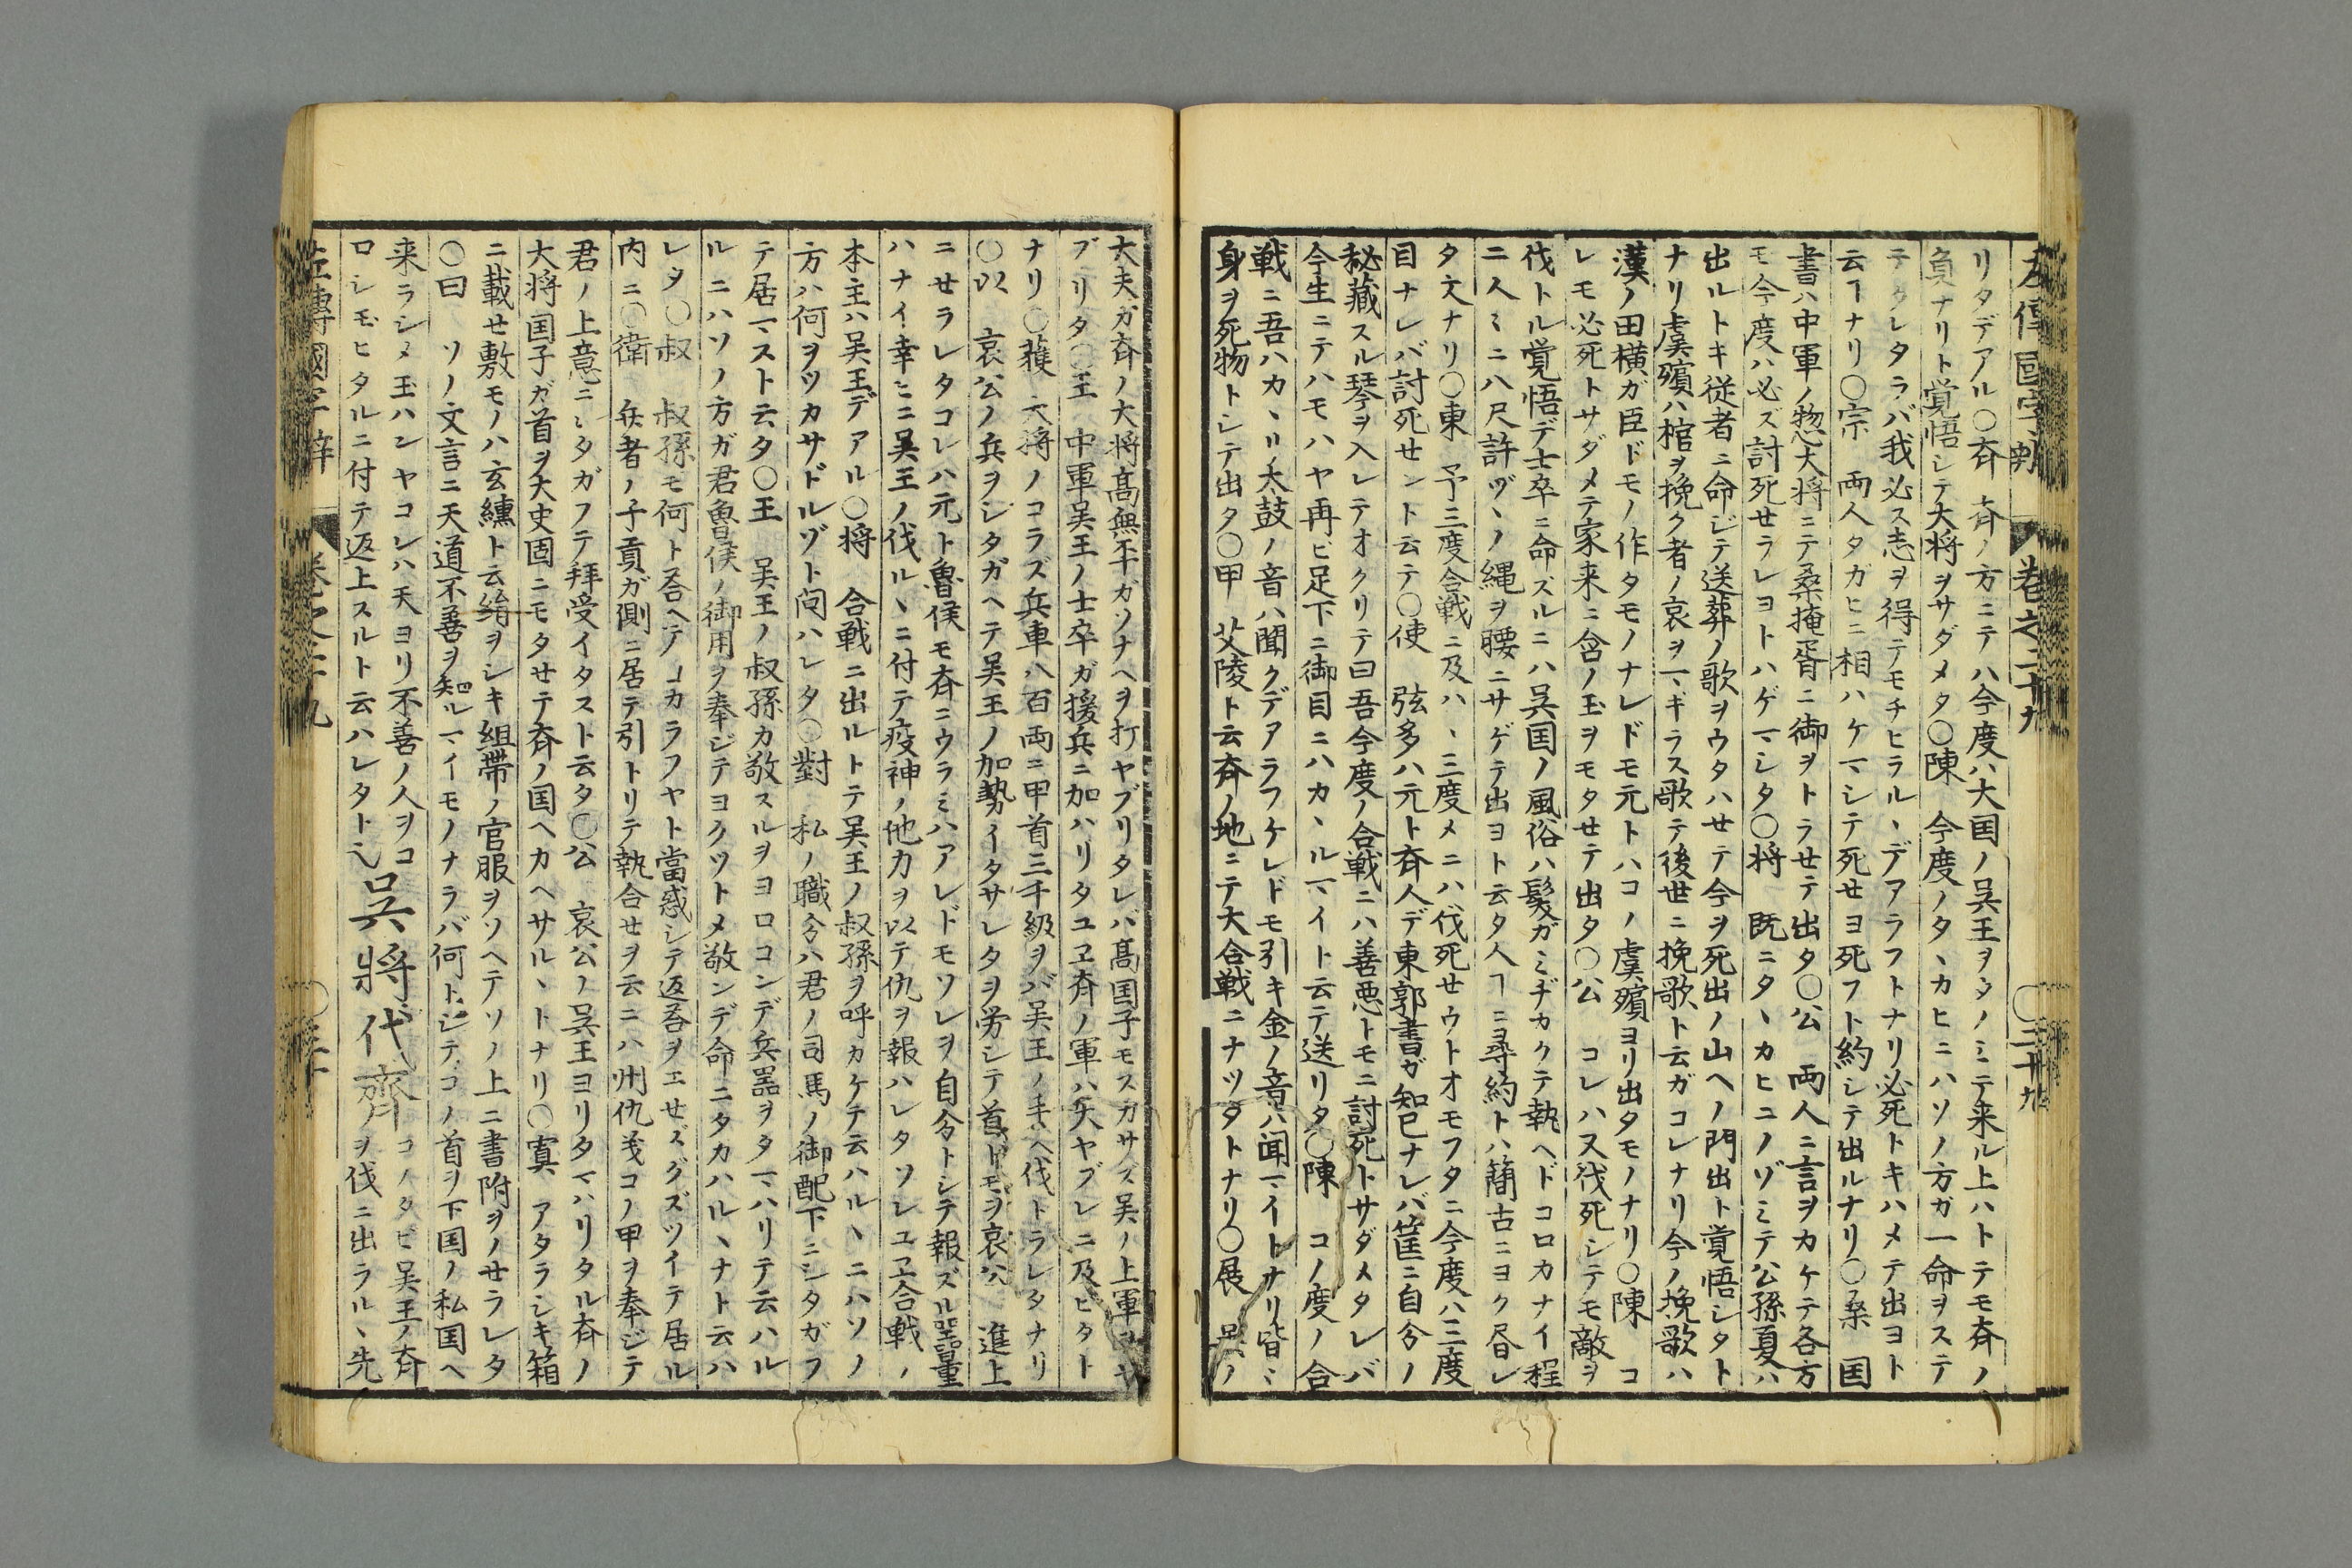 左傳國字辯 巻之二十九 〇三十九
リタデアル〇斉 斉ノ方ニテハ今度ハ大国ノ呉王ヲタノミテ来ル上ハトテモ斉ノ
負ナリト覚悟シテ大将ヲサダメタ〇陳 今度ノタヽカヒニハソノ方ガ一命ヲステ
テクレタラバ我必ス志ヲ得テモチヒラルヽデアラフトナリ必死トキハメテ出ヨト
云ヿナリ〇宗 両人タガヒニ相ハケマシテ死セヨ死フト約シテ出ルナリ〇桑 国
書ハ中軍ノ惣大将ニテ桑掩胥ニ御ヲトラセテ出タ〇公 両人ニ言ヲカケテ各方
モ今度ハ必ズ討死セラレヨトハゲマシタ〇将 既ニタヽカヒニノゾミテ公孫夏ハ
出ルトキ従者ニ命ジテ送葬ノ歌ヲウタハセテ今ヲ死出ノ山ヘノ門出ト覚悟シタト
ナリ虞殯ハ棺ヲ挽ク者ノ哀ヲマギラス歌テ後世ニ挽歌ト云ガコレナリ今ノ挽歌ハ
漢ノ田横ガ臣ドモノ作タモノナレドモ元トハコノ虞殯ヨリ出タモノナリ〇陳 コ
レモ必死トサダメテ家来ニ含ノ玉ヲモタセテ出タ〇公 コレハ又伐死シテモ敵ヲ
伐トル覚悟デ士卒ニ命ズルニハ呉国ノ風俗ハ髪ガミヂカクテ執ヘドコロカナイ程
ニ人ミニ八尺許ヅヽノ縄ヲ腰ニサゲテ出ヨト云タ人ヿニ尋約トハ蕳古ニヨク昏レ
タ文ナリ〇東 予三度合戦ニ及ハヽ三度メニハ伐死セウトオモフタニ今度ハ三度
目ナレバ討死セント云テ〇使 弦多ハ元ト斉人デ東郭書ガ知已ナレバ筐ニ自分ノ
秘蔵スル琴ヲ入レテオクリテ曰吾今度ノ合戦ニハ善悪トモニ討死トサダメタレバ
今生ニテハモハヤ再ビ足下ニ御目ニハカヽルマイト云テ送リタ〇陳 コノ度ノ合
戦ニ吾ハカヽリノ太鼓ノ音ハ聞クデアラフケレドモ引キ金ノ音ハ聞マイトナリ皆ミ
身ヲ死物トシテ出タ〇甲 艾陵ト云斉ノ地ニテ大合戦ニナツタトナリ〇展 呉ノ
大夫ガ斉ノ大将髙無丕ガソナヘヲ打ヤブリタレバ髙国子モスカサズ呉ノ上軍ヲヤ
ブリタ〇王 中軍呉王ノ士卒ガ援兵ニ加ハリタユヱ斉ノ軍ハ大ヤブレニ及ビタト
ナリ〇獲 大将ノコラズ兵車八百両ニ甲首三千級ヲバ呉王ノ手ヘ伐トラレタナリ
〇以 哀公ノ兵ヲシタガヘテ呉王ノ加勢イタサレタヲ労シテ首ドモヲ哀公 進上
ニセラレタコレハ元ト魯侯モ斉ニウラミハアレドモソレヲ自分トシテ報ズル器量
ハナイ幸ミニ呉王ノ伐ルヽニ付テ疫神ノ他力ヲ以テ仇ヲ報ハレタソレユヱ合戦ノ
本主ハ呉王デアル〇将 合戦ニ出ルトテ呉王ノ叔孫ヲ呼カケテ云ハルヽニハソノ
方ハ何ヲツカサドルゾト問ハレタ〇對 私ノ職分ハ君ノ司馬ノ御配下ニシタガフ
テ居マスト云タ〇王 呉王ノ叔孫カ敬スルヲヨロコンデ兵噐ヲタマハリテ云ハル
ルニハソノ方ガ君魯侯ノ御用ヲ奉ジテヨクツトメ敬ンデ命ニタカハルヽナト云ハ
レタ〇叔 叔孫モ何ト荅ヘテヨカラフヤト當惑シテ返荅ヲエセズグズツイテ居ル
内ニ〇衛 兵者ノ子貢ガ側ニ居テ引トリテ執合セヲ云ニハ州仇茂コノ甲ヲ奉ジテ
君ノ上意ニシタガフテ拝受イタスト云タ〇公 哀公ノ呉王ヨリタマハリタル斉ノ
大将国子ガ首ヲ大史固ニモタセテ斉ノ国ヘカヘサルヽトナリ〇寘 アタラシキ箱
ニ載セ敷モノハ玄纁ト云絹ヲシキ組帶ノ官服ヲソヘテソノ上ニ書附ヲノセラレタ
〇曰 ソノ文言ニ天道不善ヲ知ルマイモノナラバ何トシテコノ首ヲ下国ノ私国ヘ
来ラシメ玉ハンヤコレハ天ヨリ不善ノ人ヲコ
ロシモヒタルニ付テ返上スルト云ハレタト也 呉將伐齊 コノタビ呉王ノ斉
ヲ伐ニ出ラルヽ先
左傳國字辯 巻之二十九 〇三十